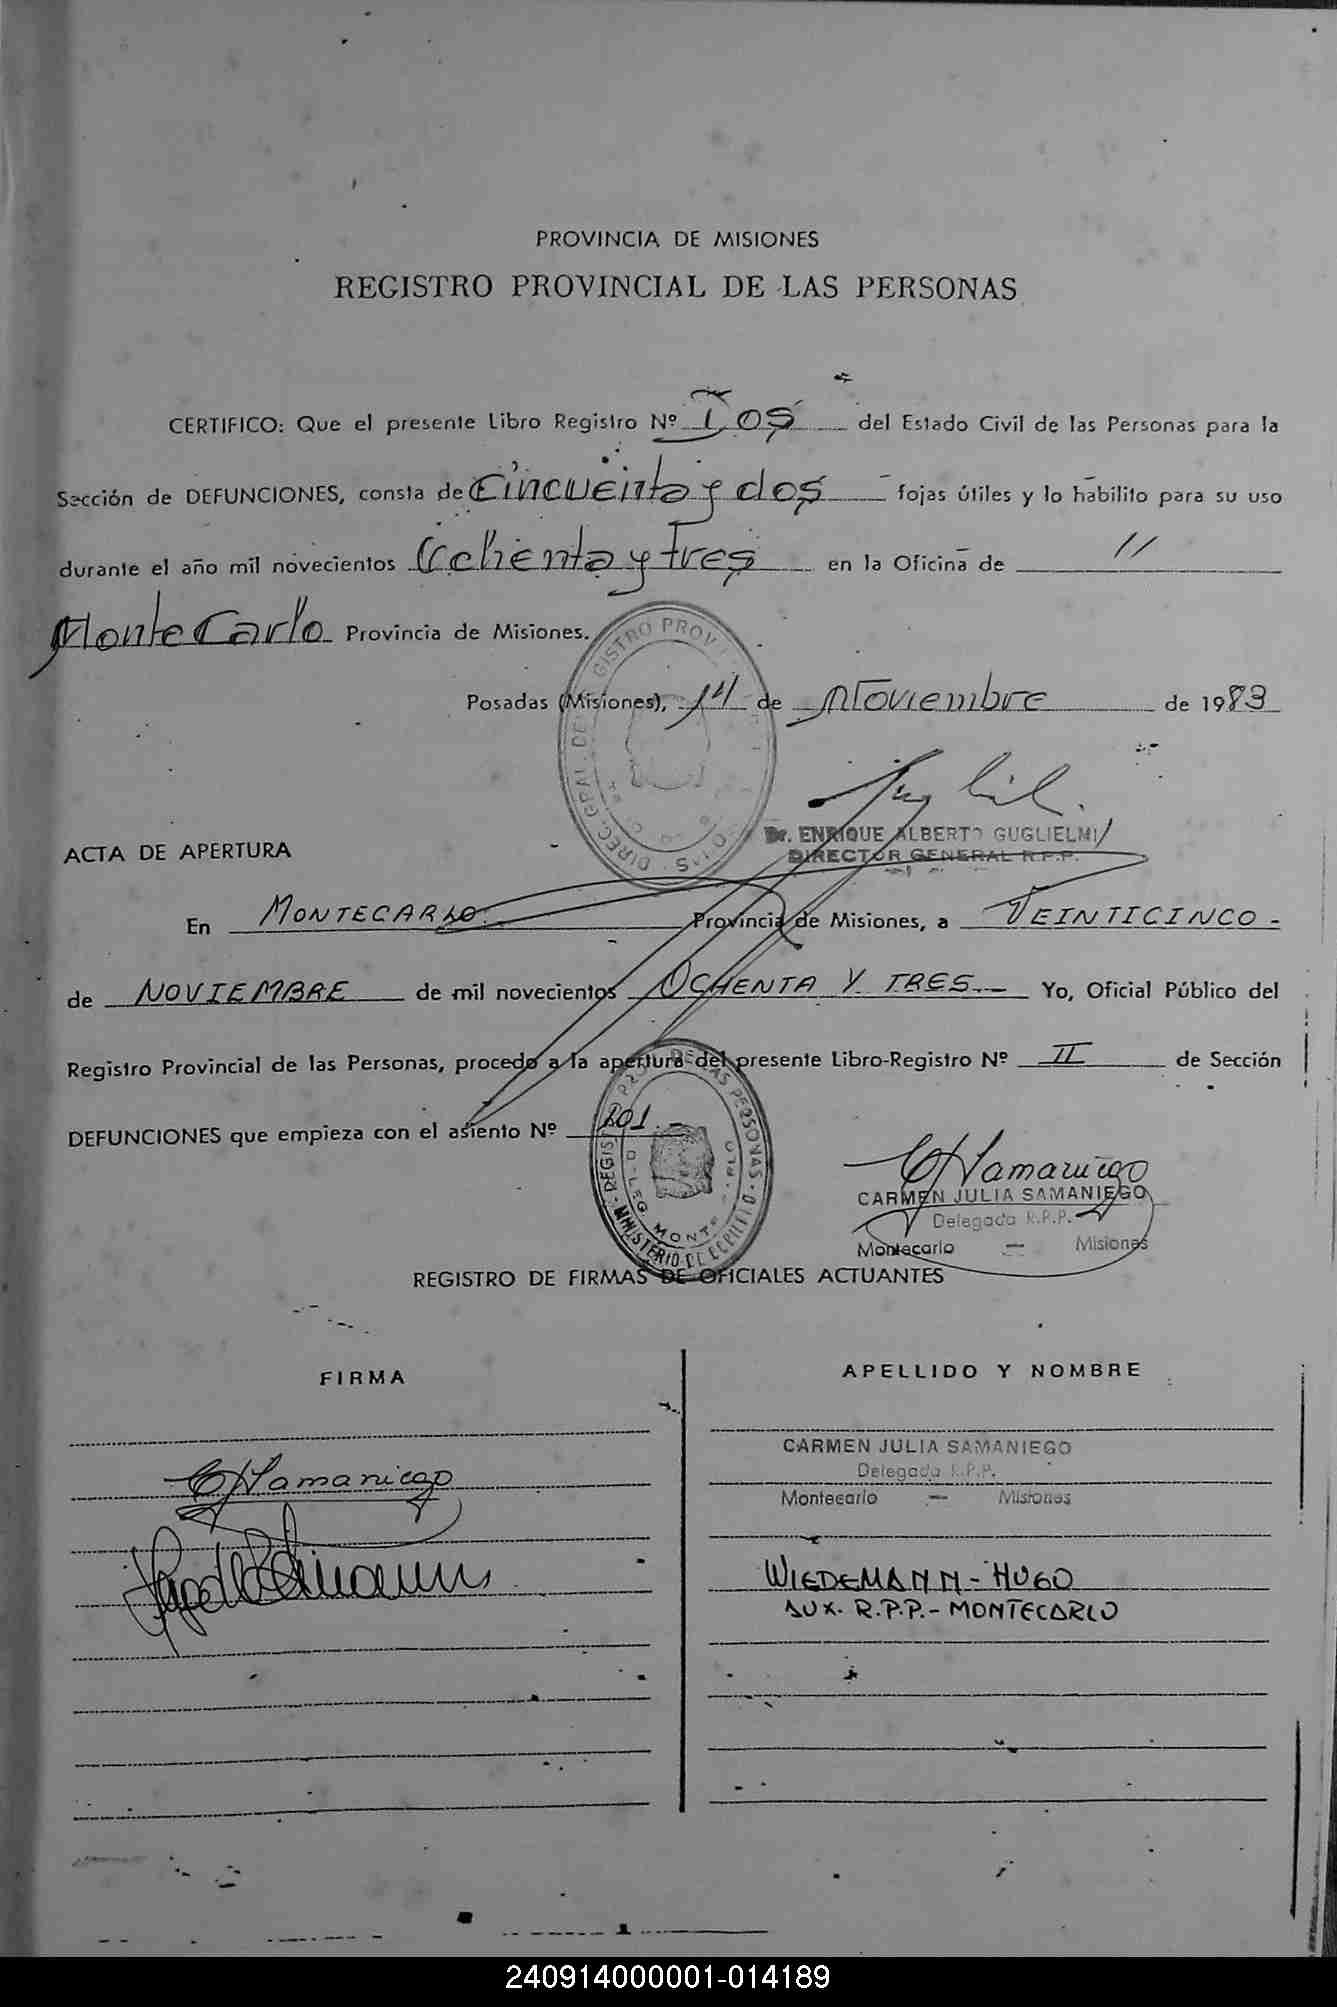 PROVINCIA DE MISIONES
REGISTRO PROVINCIAL DE LAS PERSONAS
CERTIFICO: Que el presente Libro Registro Nº Dos del Estado Civil de las Personas para la
Sección de DEFUNCIONES, consta de Cincuenta y dos fojas útiles y lo habilito para su uso
durante el año mil novecientos Ochenta y Tres en la Oficina de //
Monte Carlo Provincia de Misiones.
Posadas (Misiones), 14 de Noviembre de 1983
Dr. ENRIQUE ALBERTO GUGLIELMI
DIRECTOR GENERAL R.P.P.
ACTA DE APERTURA
En MONTECARLO Provincia de Misiones, a VEINTICINCO -
de NOVIEMBRE de mil novecientos OCHENTA Y TRES.- Yo, Oficial Público del
Registro Provincial de las Personas, procedo a la apertura del presente Libro-Registro Nº II de Sección
DEFUNCIONES que empieza con el asiento Nº 201.
CJSamaniego
CARMEN JULIA SAMANIEGO
Delegada R.P.P.
Montecarlo — Misiones
REGISTRO DE FIRMAS DE OFICIALES ACTUANTES
FIRMA APELLIDO Y NOMBRE
CJSamaniego CARMEN JULIA SAMANIEGO
Delegada R.P.P.
Montecarlo — Misiones
WIEDEMANN - HUGO
AUX. R.P.P. - MONTECARLO
240914000001-014189